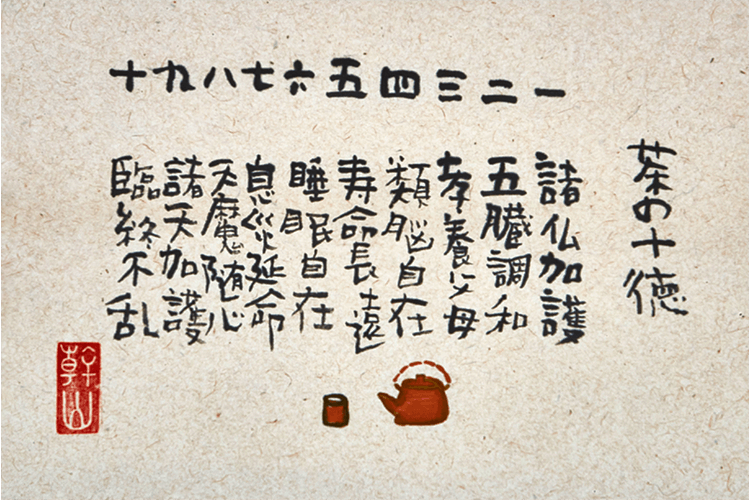 茶の十徳
一 諸仏加護
二 五臓調和
三 孝養父母
四 類脳自在
五 寿命長遠
六 睡眠自在
七 息災延命
八 天魔随心
九 諸天加護
十 臨終不乱
幹山